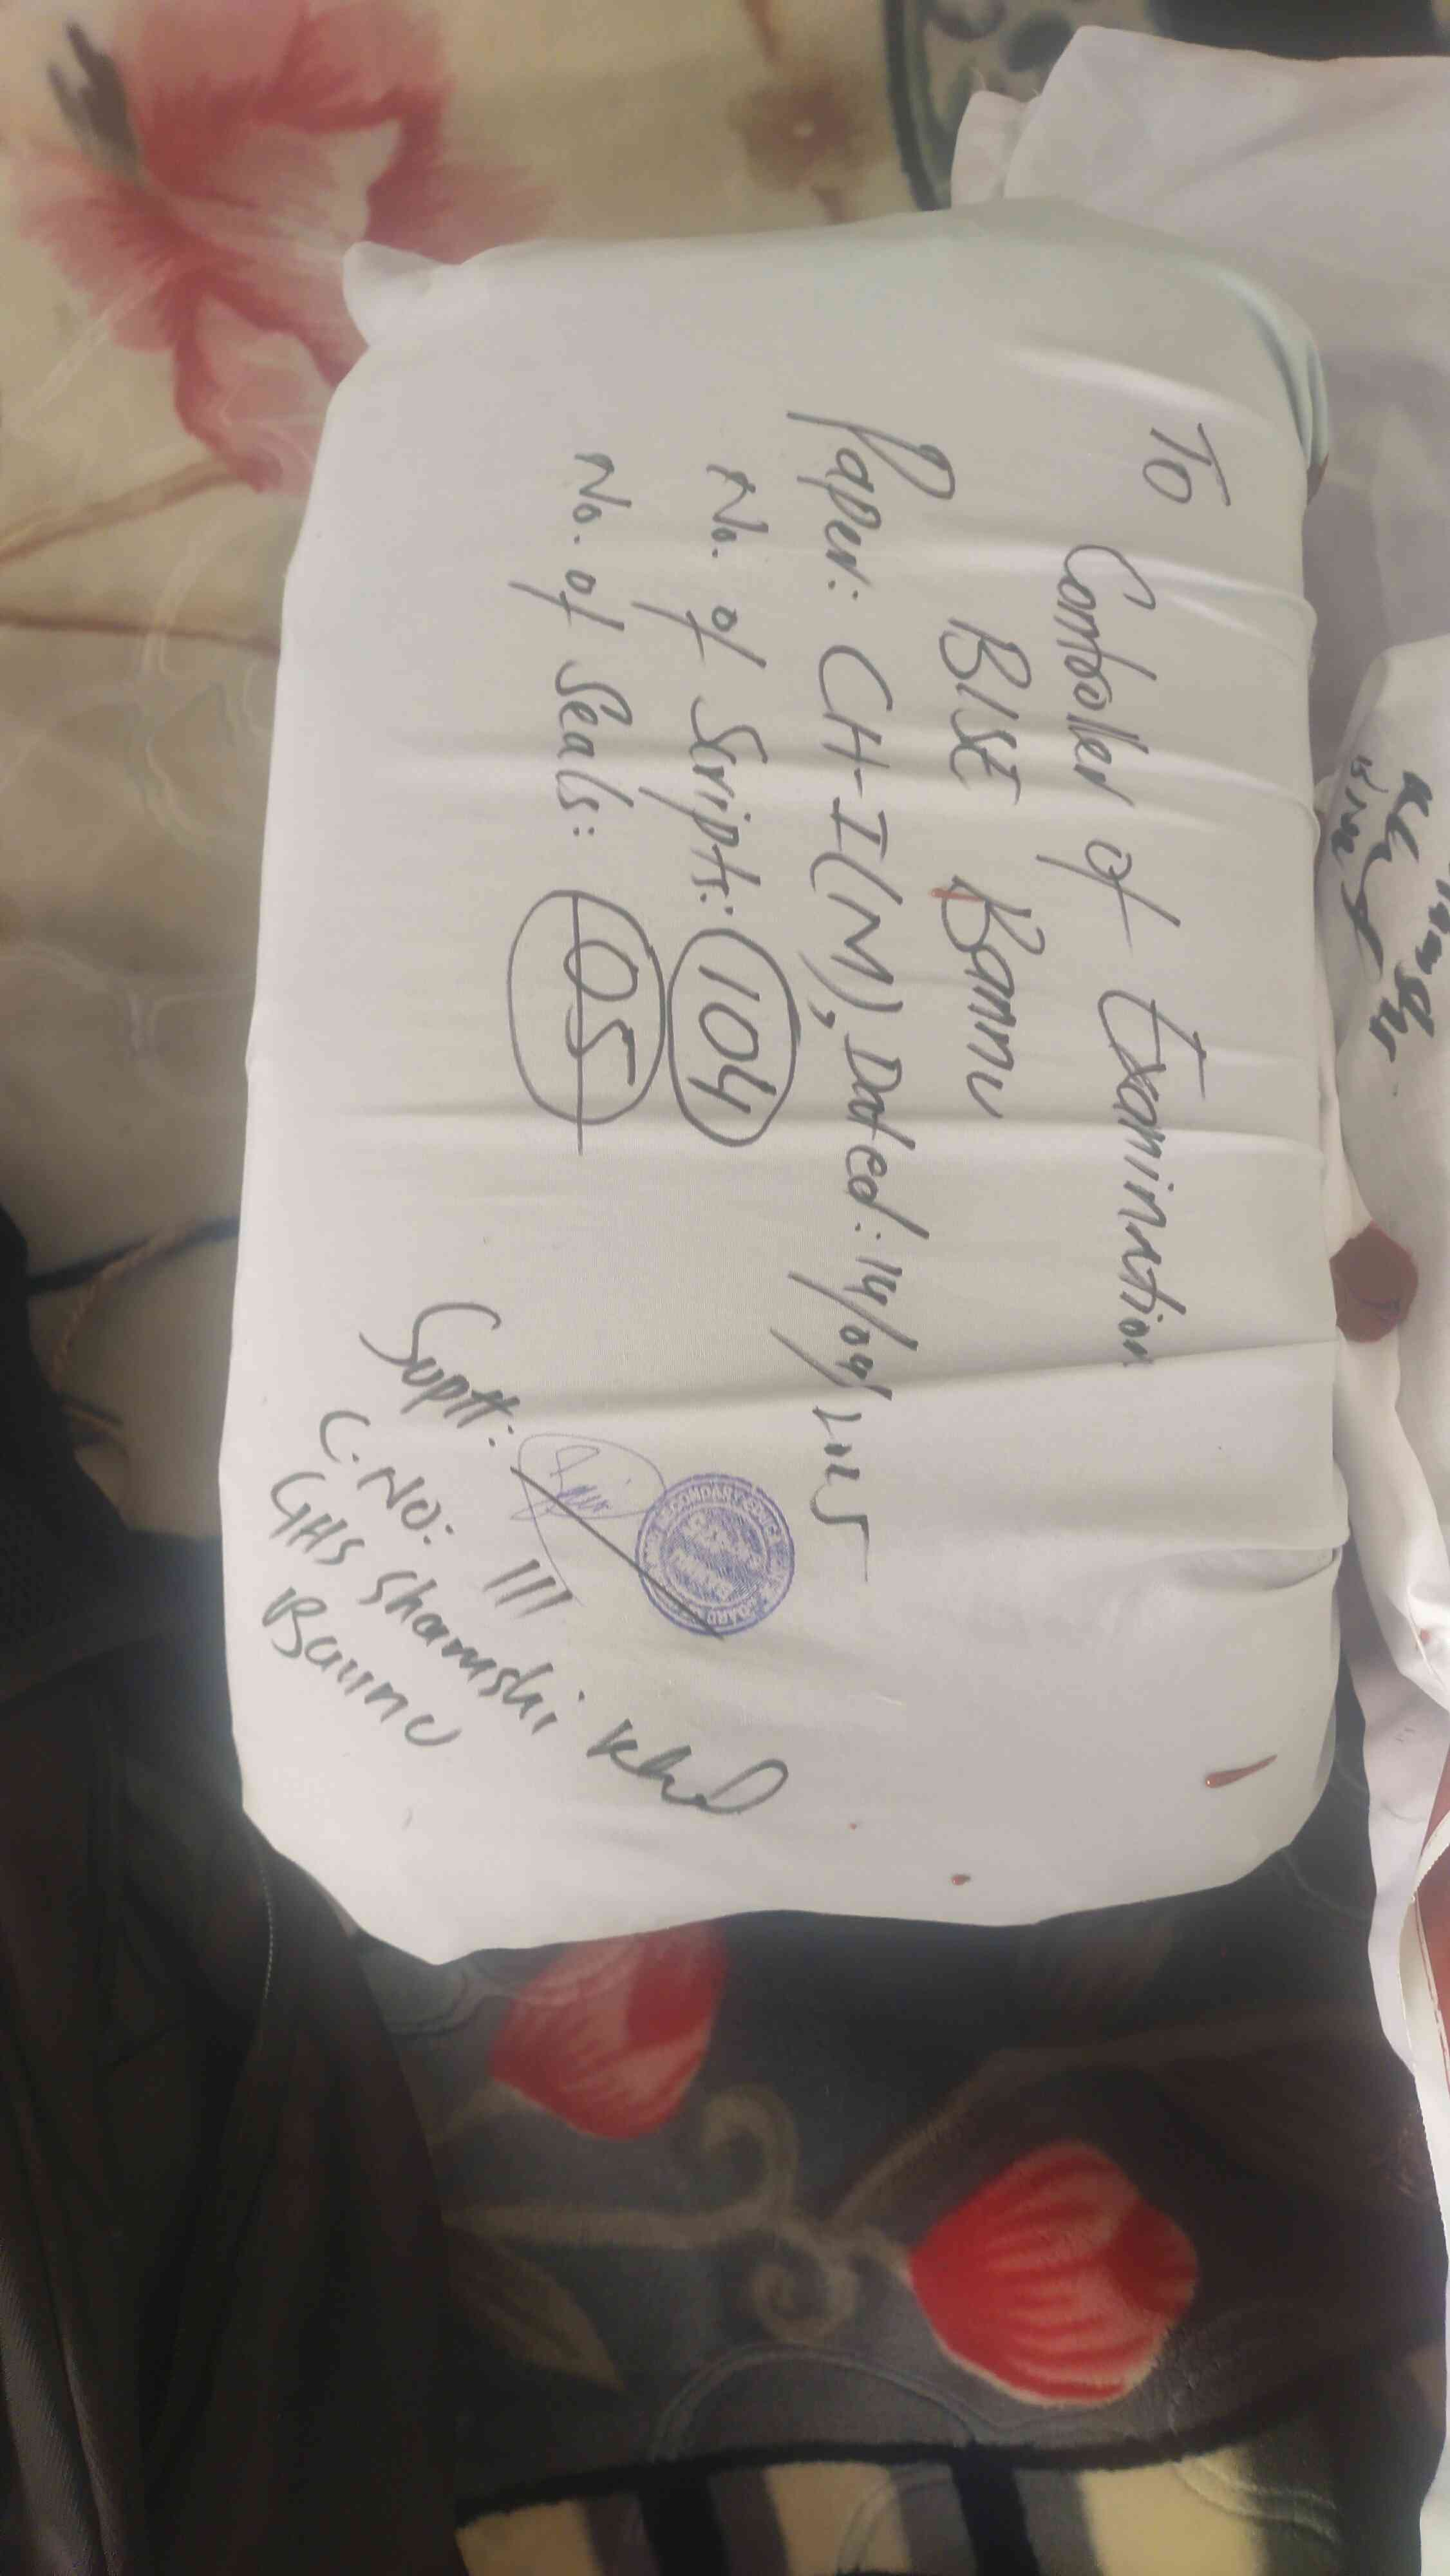 To
Controller of Examination
BISE Bannu
Paper: CH-I(M), Dated: 14/04/2025
No. of Scripts: 104
No. of Seals: 05
Suptt:
C. No: 111
GHS Shamshi Khel
Bannu